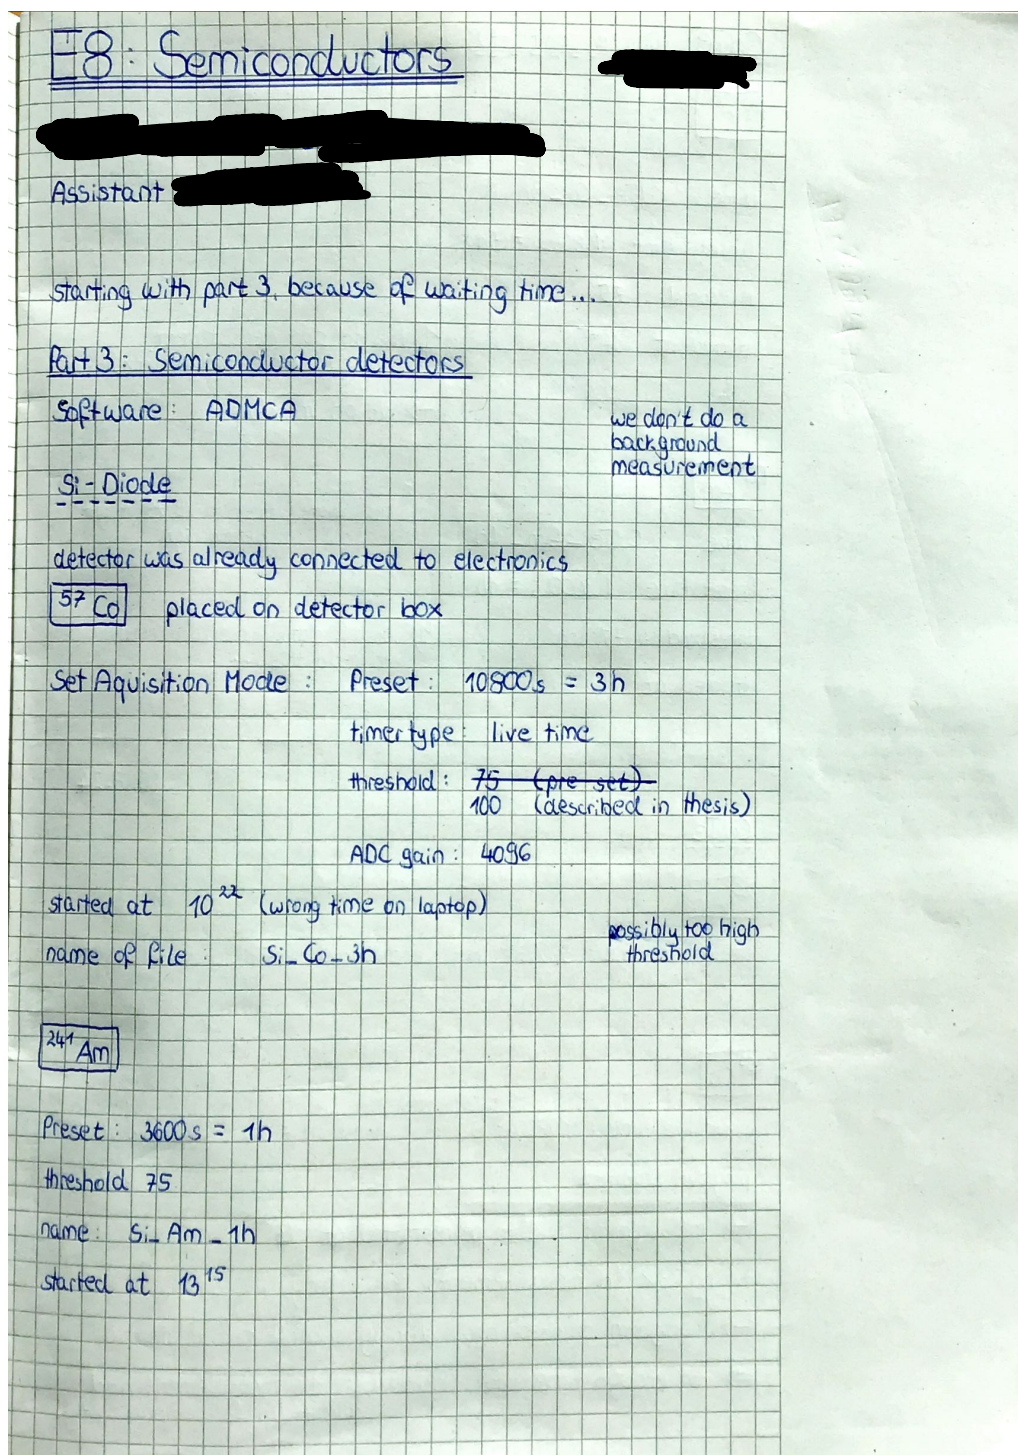 E8: Semiconductors
Assistant
starting with part 3, because of waiting time...
Part 3: Semiconductor detectors
Software: ADMCA
we don't do a
background
measurement
Si-Diode
detector was already connected to electronics
⁵⁷Co placed on detector box
Set Aquisition Mode: Preset: 10800s = 3h
timer type: live time
threshold: 75 (pre set)
100 (described in thesis)
ADC gain: 4096
started at 10²² (wrong time on laptop)
possibly too high
threshold
name of file: Si_Co_3h
²⁴¹Am
Preset: 3600s = 1h
threshold 75
name: Si_Am_1h
started at 13¹⁵